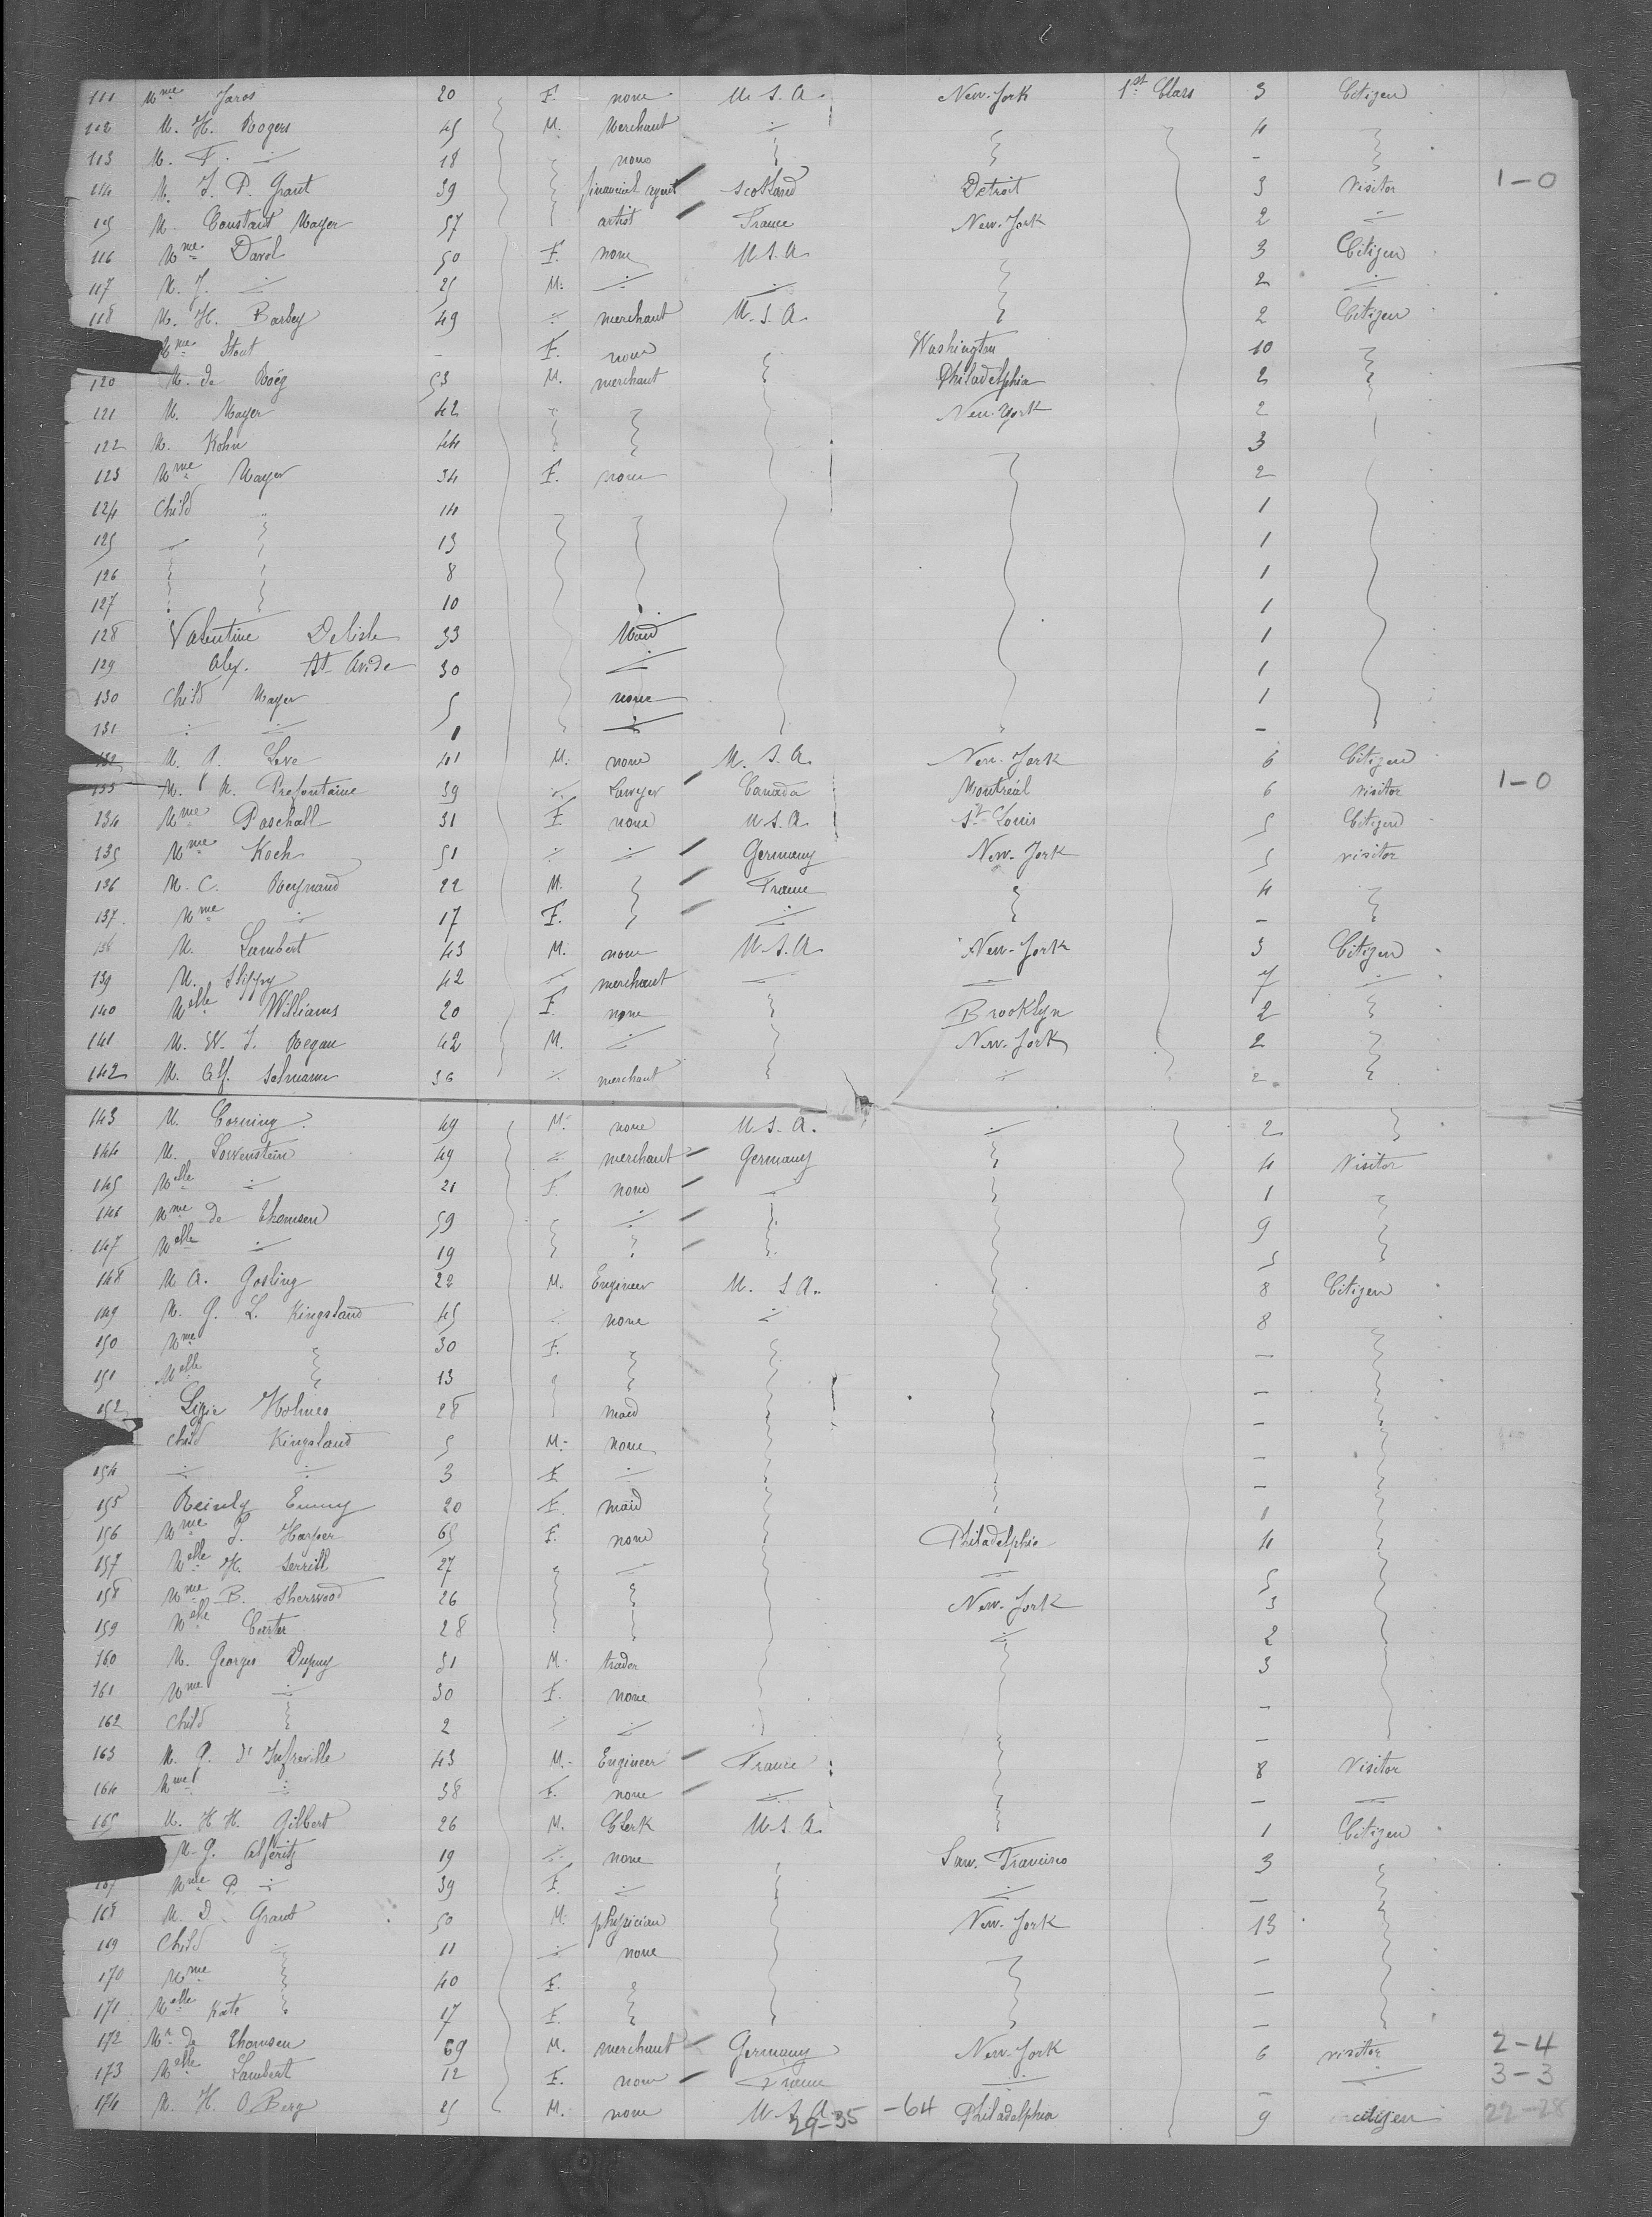 111 Mme Jaros 20 F. none U.S.A. New-York 1st Class 3 Citizen
112 M. H. Rogers 45 M. Merchant ÷ 4
113 M. F. ÷ 18 none -
114 M. J. P. Grant 39 financial agent Scotland Detroit 3 Visitor 1-0
115 M. Constant Mayer 57 artist France New-York 2 ÷
116 Mme Darol 50 F. none U.S.A. 3 Citizen
117 M. J. ÷ 25 M. ÷ ÷ 2 ÷
118 M. H. Barbey 49 ÷ merchant U.S.A. 2 Citizen
Mme Stout - F. none Washington 10
120 M. de Roég 53 M. merchant Philadelphia 2
121 M. Mayer 42 New-York 2
122 M. Kohn 44 3
123 Mme Mayer 34 F. none 2
124 Child " 14 1
125 13 1
126 8 1
127 10 1
128 Valentine Delisle 33 Maid 1
129 Alex. St Avide 30 ÷ 1
130 Child Mayer 5 none 1
131 ÷ ÷ 1 ÷ -
132 M. P. Love 41 M. none U.S.A. New-York 6 Citizen
133 M. R. Prefontaine 39 Lawyer Canada Montréal 6 visitor 1-0
134 Mme Paschall 31 F. none U.S.A. St Louis 5 Citizen
135 Mme Koch 51 ÷ ÷ Germany New-York 5 visitor
136 M. C. Reynaud 22 M. France 4
137 Mme ÷ 17 F. ÷ -
138 M. Lambert 43 M. none U.S.A. New-York 3 Citizen
139 M. Slippy 42 ÷ merchant ÷ ÷ 7 ÷
140 Melle Williams 20 F. none Brooklyn 2
141 M. W. J. Regan 42 M. ÷ New-York 2
142 M. Alf. Selmann 36 ÷ merchant ÷ 2
143 M. Corning 49 M. none U.S.A. ÷ 2
144 M. Lowenstein 49 ÷ merchant Germany 4 Visitor
145 Melle ÷ 21 F. none ÷ 1
146 Mme de Thomsen 59 ÷ 9
147 Melle ÷ 19 5
148 M. A. Gosling 22 M. Engineer U.S.A. 8 Citizen
149 M. G. L. Kingsland 45 ÷ none ÷ 8
150 Mme 30 F. -
151 Melle 13 -
152 Lizzie Holmes 28 maid -
Child Kingsland 5 M. none -
154 ÷ ÷ 3 F. ÷ -
155 Reinly Emmy 20 F. maid 1
156 Mme J. Harper 65 F. none Philadelphia 4
157 Melle H. Serrill 27 ÷ ÷ 5
158 Mme B. Sherwood 26 New-York 3
159 Melle Carter 28 ÷ 2
160 M. Georges Dupuy 31 M. trader 3
161 Mme ÷ 30 F. none -
162 Child 2 ÷ ÷ -
163 M. P. d'Infreville 43 M. Engineer France 8 Visitor
164 Mme ÷ 38 F. none ÷ - ÷
165 M. H. H. Gilbert 26 M. Clerk U.S.A. 1 Citizen
M. G. Alferitz 19 ÷ none San. Francisco 3
167 Mme P. ÷ 39 F. ÷ ÷ -
168 M. D. Grant 50 M. physician New-York 13
169 Child ÷ 11 ÷ none -
170 Mme 40 F. -
171 Melle Kate 17 F. -
172 Mr de Thomsen 69 M. merchant Germany New-York 6 visitor 2-4
173 Melle Lambert 12 F. none France ÷ - ÷ 3-3
174 M. H. O. Berg 25 M. none U.S.A. Philadelphia 9 citizen 22-28
29-35 -64